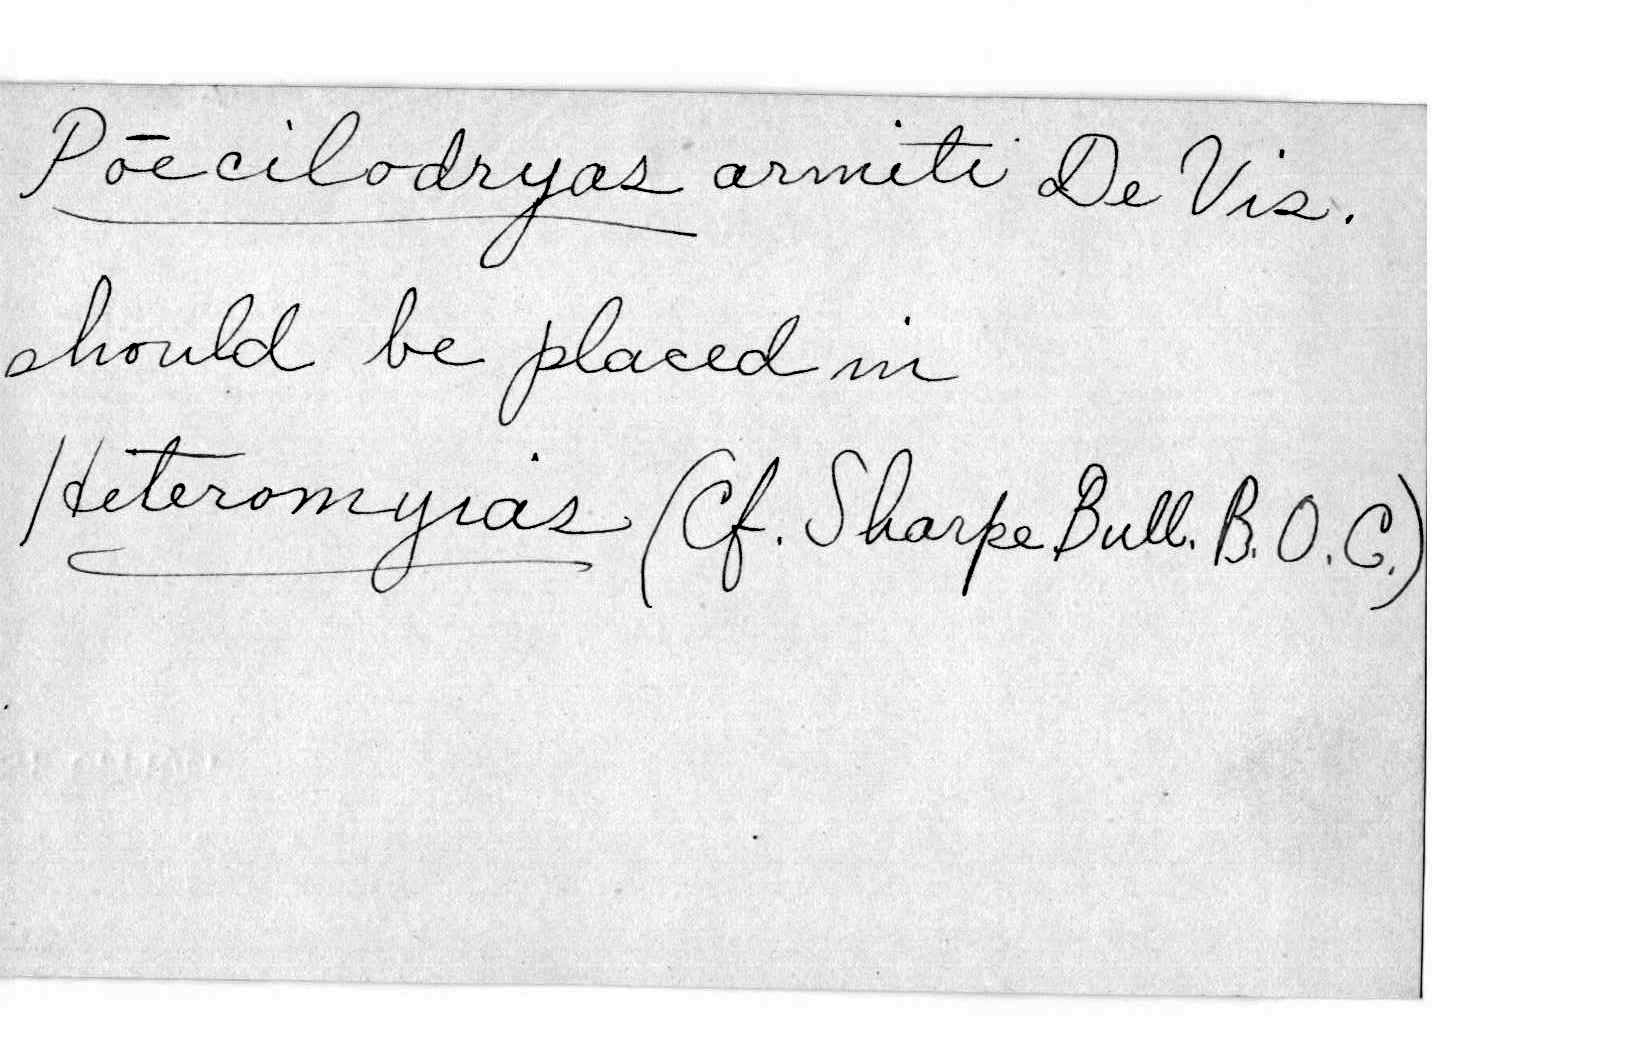 Pōecilodryas armiti De Vis.
should be placed in
Heteromyias (Cf. Sharpe Bull. B.O.C.)